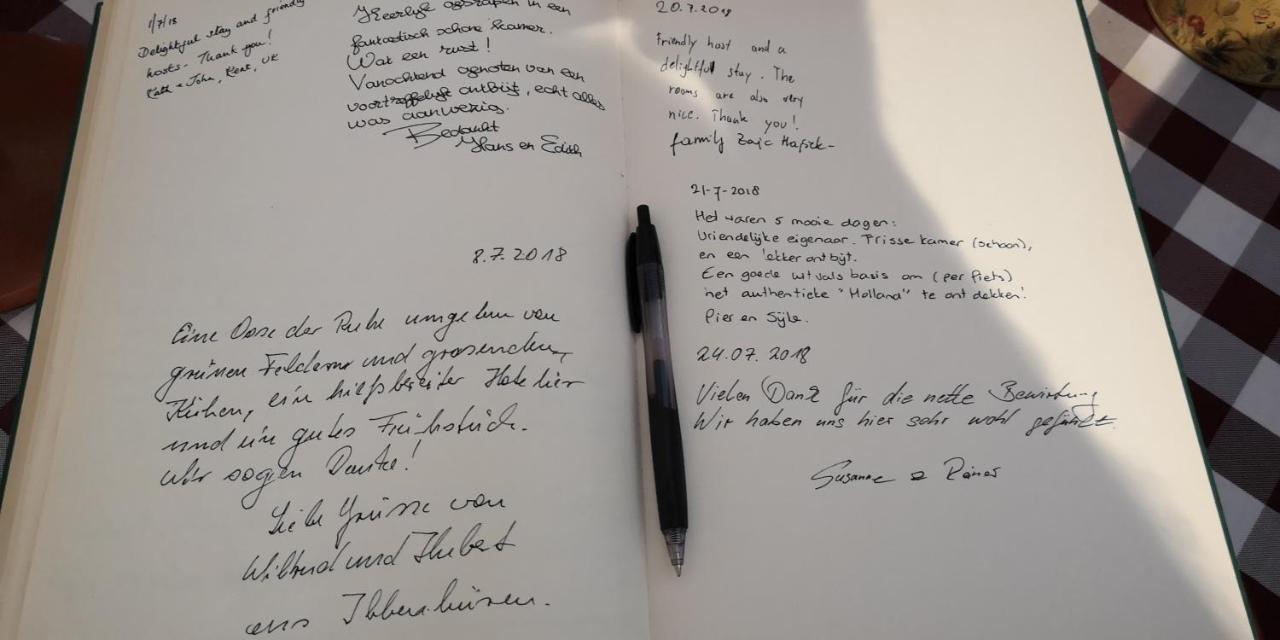 1/7/18
Delightful stay and friendly
hosts - Thank you!
Kath + John, Kent, UK
Heerlijk geslapen in een
fantastisch schone kamer.
Wat een rust!
Vanochtend genoten van een
voortreffelijk ontbijt, echt alles
was aanwezig.
Bedankt
Hans en Edith
8.7.2018
Eine Oase der Ruhe umgeben von
grünen Feldern und grasenden
Kühen, ein hilfsbereiter Hotelier
und ein gutes Frühstück.
Wir sagen Danke!
Liebe Grüsse von
und Hubert
aus Ibbenbüren.
20.7.2018
Friendly host and a
delightful stay. The
rooms are also very
nice. Thank you!
family Zajc
21-7-2018
Het waren 5 mooie dagen:
Vriendelijke eigenaar. Frisse kamer (schoon),
en een lekker ontbijt.
Een goede uitvals basis om (per fiets)
het authentieke "Holland" te ontdekken!
Pier en Sijke.
24.07.2018
Vielen Dank für die nette Bewirtung
Wir haben uns hier sehr wohl gefühlt.
Susanne & Rainer